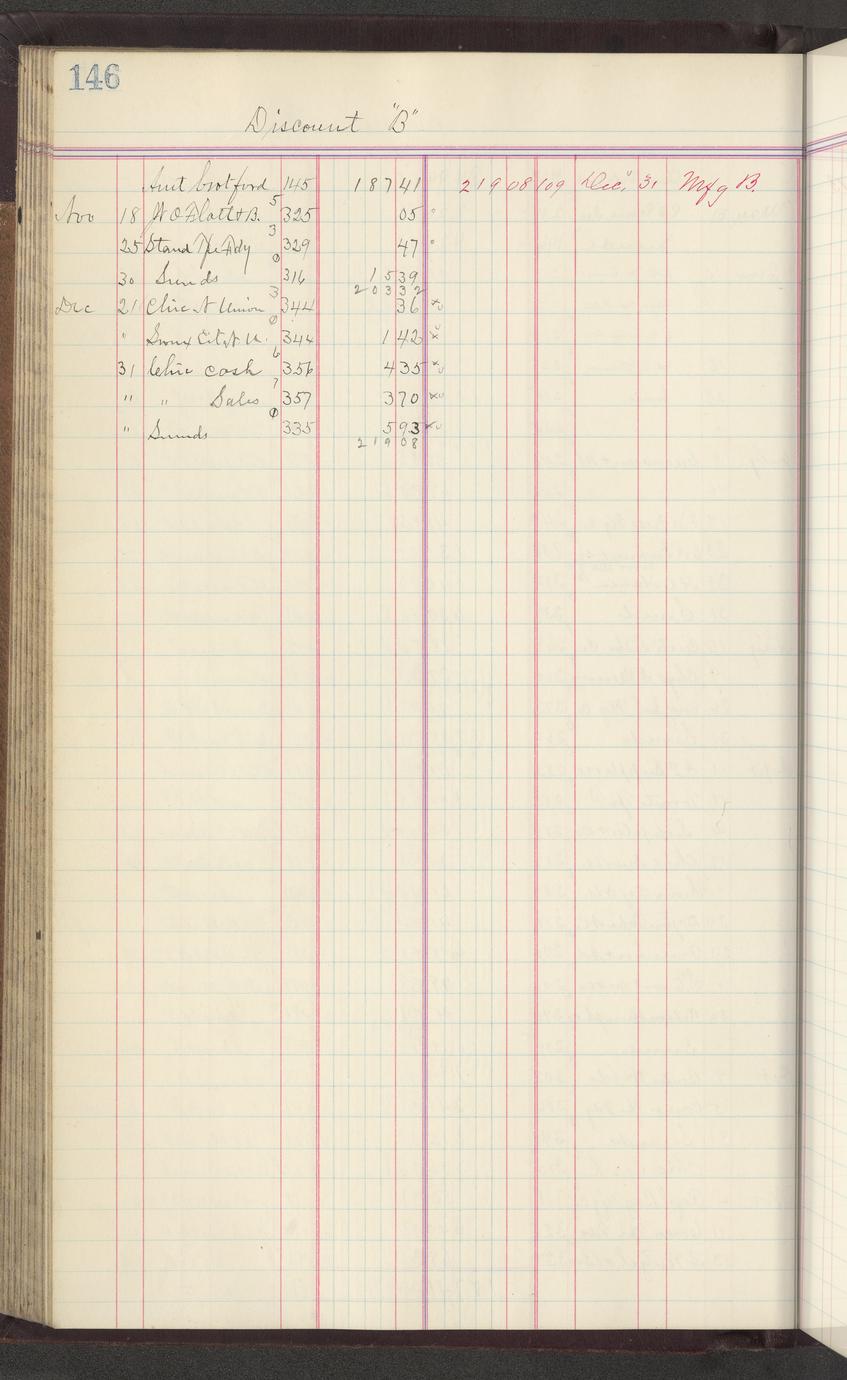 146
Discount "B"
Amt brot ford 145 187 41 219 08 109 Dec. 31 Mfg B.
Nov 18 W O & B. 5 325 05
25 Stand Adv 3 329 47
30 Sunds 0 316 15 39
203 32
Dec 21 Chic N Union 3 344 36
" Sioux City N U. 0 344 1 42
31 Chic cash 6 356 4 35
" " Sales 7 357 3 70
" Sunds 0 335 5 93
219 08